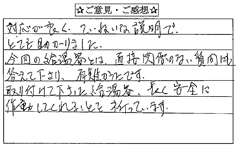 ☆ご意見・ご感想☆
対応が良く、ていねいな説明で、
とても助かりました。
今回の給湯器とは、直接関係のない質問にも
答えて下さり、有難かったです。
取り付けて下さった給湯器、長く安全に
作動してくれることを祈っています。